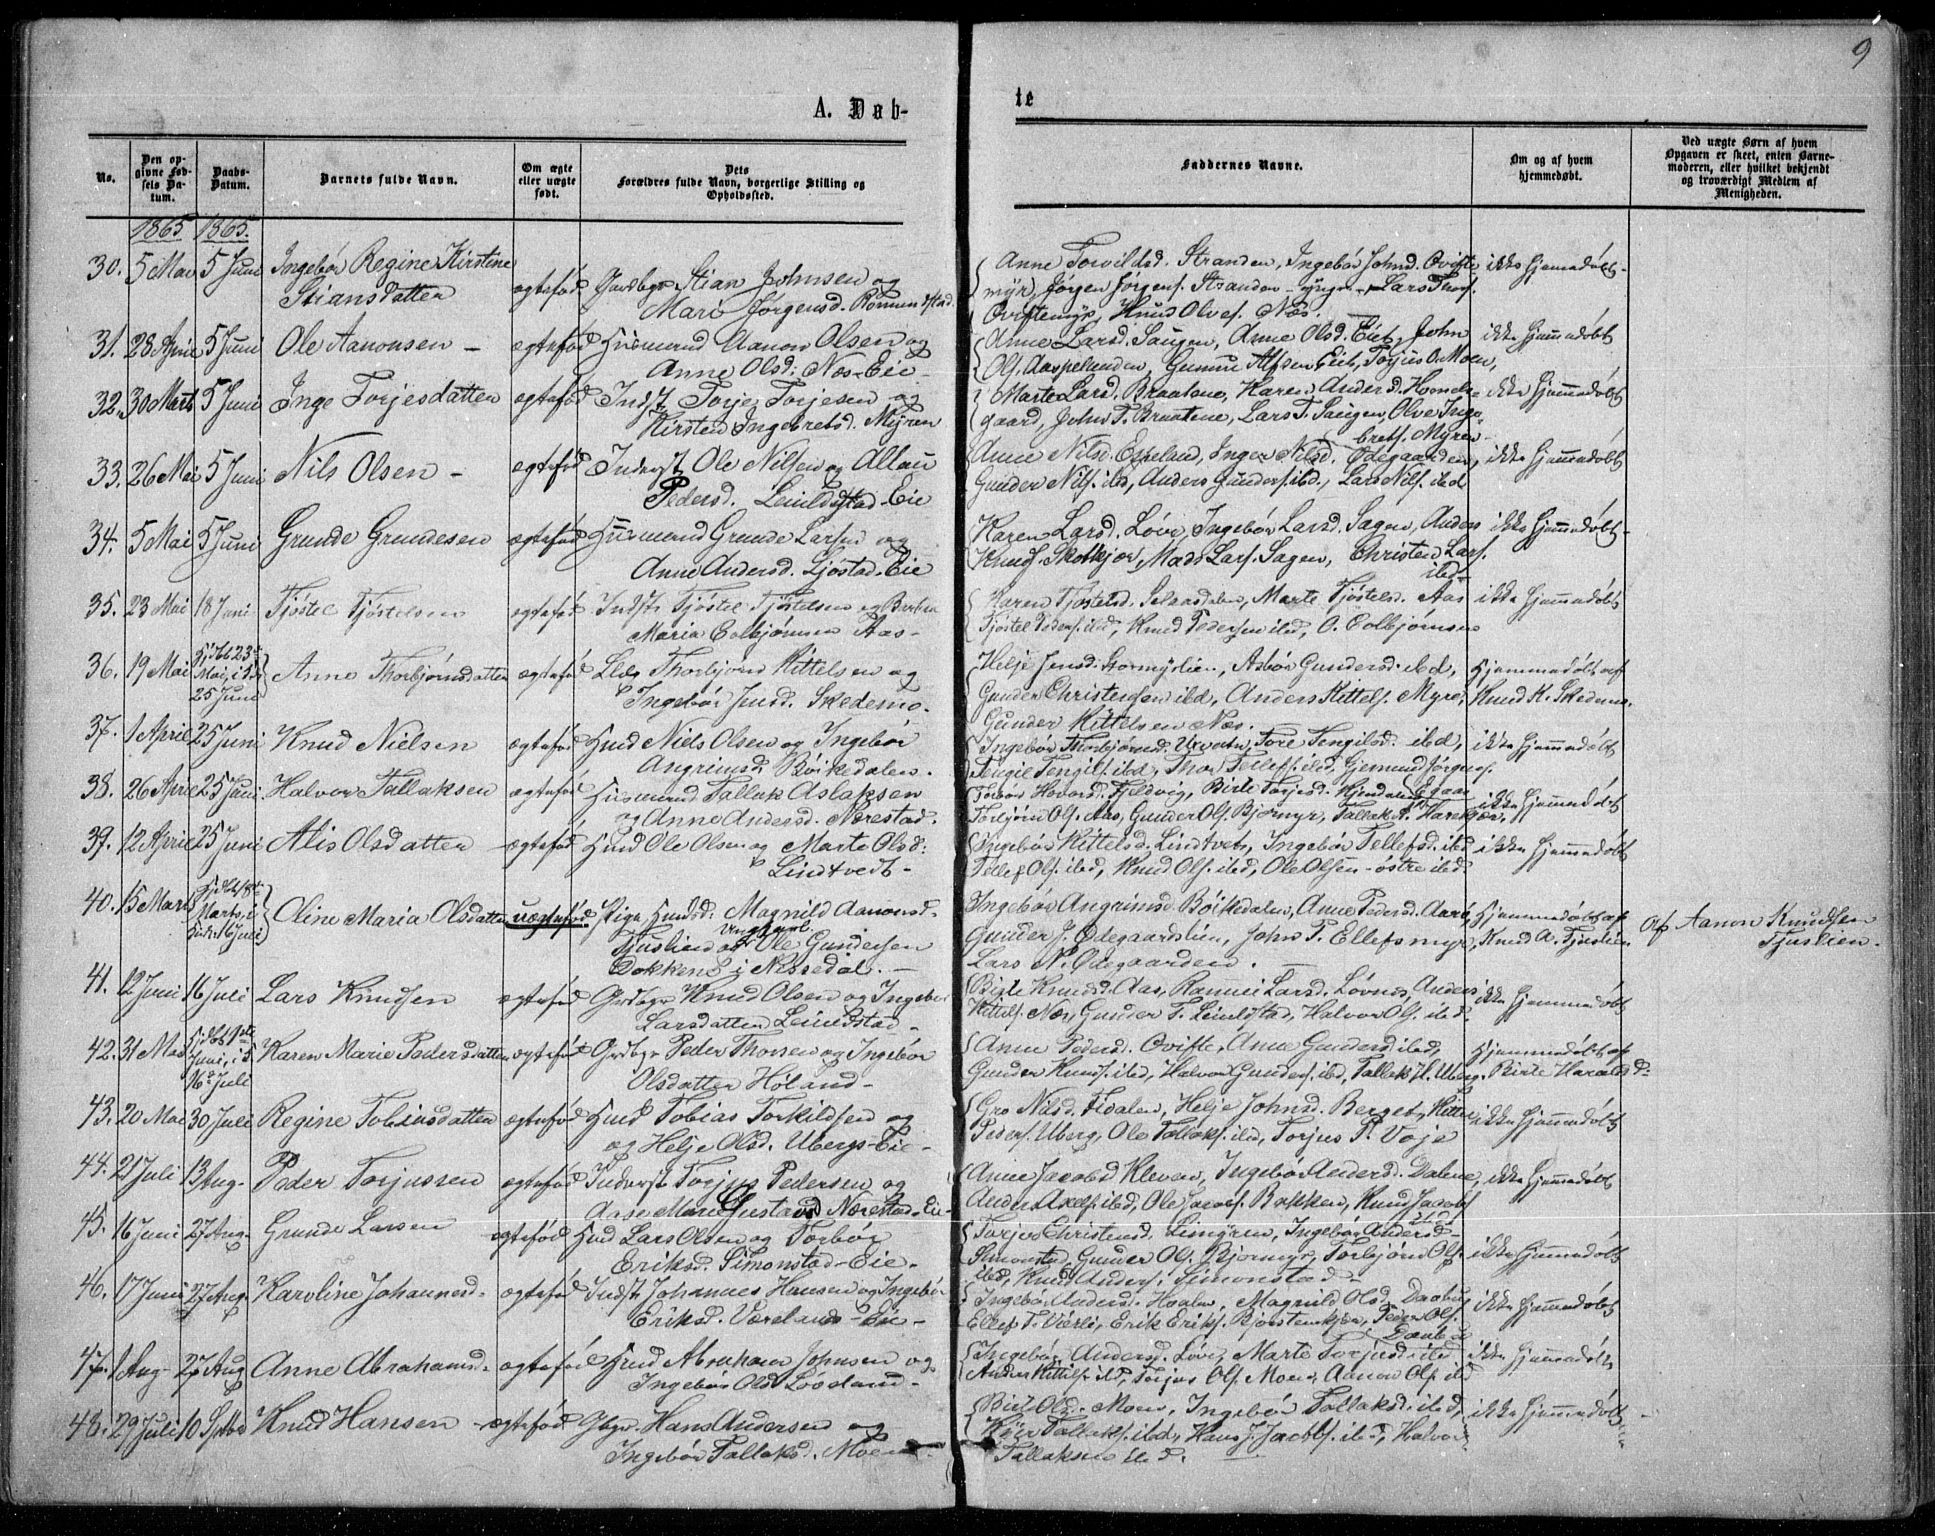 9
A. Døb-
te
No.
Den op-
givne Fød-
sels Da-
tum.
Daabs-
Datum.
Barnets fulde Navn.
Om ægte
eller uægte
født.
Dets
Forældres fulde Navn, borgerlige Stilling og
Opholdssted.
Faddernes Navne.
Om og af hvem
hjemmedøbt.
Ved uægte Børn af hvem
Opgaven er skeet, enten Barne-
moderen, eller hvilket bekjendt
og troværdigt Medlem af
Menigheden.
1865 1865.
30. 5 Mai 5 Juni Ingebør Regine Kirstine
Stiansdatter
ægtefød Gaardbgr Stian Johnsen og
Mari Jørgensd. Rommundstad.
Anne Torvildsd. Stranden, Ingebør Johnsd. Ovifte
myr, Jørgen Jørgens. Stranden yngre, Lars Thors.
Oviftemyr, Knud Olves. Næs.
ikke hjemmedøbt
31. 28 April 5 Juni Ole Aanonsen - ægtefød Husmand Aanon Olsen og
Anne Olsd: Næs-Eie
Anne Larsd. Saugen, Anne Olsd. Eiet, John
Ols. Aaspehenden, Gunnu Alfsen Eiet, Torjus O. Moen,
ikke hjemmedøbt
32. 30 Marts 5 Juni Inge Torjesdatter ægtefød Indst Torje Torjesen og
Kirsten Ingebretsd. Myren
Marte Larsd. Braatene, Karen Andersd. Homels-
gaard, John T. Braatene, Lars T. Saugen, Olve Inge-
brets. Myren
ikke hjemmedøbt
33. 26 Mai 5 Juni Nils Olsen - ægtefød Inderst Ole Nilsen og Allau
Pedersd. Leiulfstad-Eie
Anne Nilsd. Espeland, Inger Nilsd. Ødegaarden,
Gunder Nils. ibd, Anders Gunders. ibd., Lars Nils. ibd
ikke hjemmedøbt
34. 5 Mai 5 Juni Grunde Grundesen ægtefød Husmand Grunde Larsen og
Anne Andersd. Sjøstad-Eie
Karen Larsd. Løvr, Ingebør Larsd. Sagen, Anders
Knuds. Skotkjær, Mads Lars. Sagen, Christen Lars.
ibd
ikke hjemmedøbt
35. 23 Mai 18 Juni Tjøstel Tjøstelsen ægtefød Indst Tjøstel Tjøstelsen og Barbro
Maria Colbjørnsen Aas-
Karen Tjøstelsd. Selaasdalen, Marte Tjøstelsd. Aas
Tjøstel Peders. ibd, Knud Pedersen ibd, O. Colbjørnsen
ikke hjemmedøbt
36. 19 Mai
Hjdbt 23
Mai, i K.
25 Juni
Anne Thorbjørnsdatter ægtefød Thorbjørn Kittelsen og
Ingebør Jensd. Skedesmo.
Helje Jensd. Stormyrlien, Asbør Gundersd. ibd,
Gunder Christensen ibd, Anders Kittels. Myre,
Gunder Kittelsen Næs.
Hjemmedøbt af
Knud K. Skedsmo.
37. 1 April 25 Juni Knud Nielsen ægtefød Hmd Niels Olsen og Ingebør
Angrimsd. Bøikedalen.
Ingebør Thorbjørnsd. Urvatn, Tore Tengilsd. ibd,
Tengil Tengils. ibd, Thor Tellefs. ibd, Gjermund Jørgens.
Egaas
ikke hjemmedøbt
38. 26 April 25 Juni Halvor Tallaksen ægtefød Husmand Tallak Aslaksen
og Anne Andersd. Nærestad.
Torbør Hovorsd. Fjeldvig, Birte Torjesd. Hjendalen,
Torbjørn Ols. Aas, Gunder Ols. Bjørmyr, Tallak A. Harekjær.
ikke hjemmedøbt
39. 12 April 25 Juni Alis Olsdatter ægtefød Hmd Ole Olsen og Marte Olsd:
Lindtvedt-
Ingebør Kittelsd. Lindtvet, Ingebør Tellefsd. ibd
Tellef Ols. ibd, Knud Ols. ibd, Ole Olsen - østre ibd.
ikke hjemmedøbt
40. 15 Marts
Hjdbt 18
Marts, i
Kirk. 16 Juli
Oline Maria Olsdatter uægtefød Pige Knudsd. Magnild Aanonsd.
Tjuslien og Ungkarl Ole Gundersen
Dokkene i Nissedal. -
Ingebør Angrimsd. Bøikedalen, Anne Pedersd. Aarø,
Gunder J. Ødegaardslien, John T. Ellefsmyr,
Lars N. Ødegaarden. -
Hjemmedøbt af
Knud A. Tjuslien
Af Aanon Knudsen
Tjuslien.
41. 12 Juni 16 Juli Lars Knudsen ægtefød Grdbgr Knud Olsen og Ingebør
Larsdatter Leiulfstad-
Birte Knudsd. Aas, Rannei Larsd. Løvnes, Anders
Kittels. Næs, Gunder T. Leiulfstad, Halvor Ols. ibd.
ikke hjemmedøbt
42. 31 Mai
Hjdbt 1ste
Juni, i K
16 Juli
Karen Marie Pedersdatter ægtefød Grdbgr Peder Thorsen og Ingebør
Olsdatter Høland-
Anne Pedersd. Ovifte, Anne Gundersd. ibd,
Gunder Knuds. ibd, Halvor Gunders. ibd, Tallak H. Uberg.
Hjemmedøbt af
Birte Haralsd-
43. 20 Mai 30 Juli Regine Tobiasdatter ægtefød Hmd Tobias Torkildsen og
og Helje Olsd. Ubergs-Eie-
Gro Nilsd. Fidalen, Helje Johnsd. Berget, Kittel
Peders. Uberg, Ole Tallaks. ibd, Torjus P. Voje
ikke hjemmedøbt
44. 21 Juli 13 Aug. Peder Torjussen ægtefød Inderst Torjus Pedersen og
Anne Marie Gustavsd Nærestad-Eie-
Anne Jacobsd Kleven, Ingebør Andersd. Dalene,
Anders Axels. ibd, Ole Jacobs. Bakken, Knud Jacobs
ibd
ikke hjemmedøbt
45. 16 Juni 27 Aug. Grunde Larsen ægtefød Hmd Lars Olsen og Torbør
Eriksd. Simonstad-Eie-
Torjer Christensd. Simyren, Ingebør Andersd-
Simonstad, Gunder Ols. Bjørmyr, Torbjørn Ols.
ibd, Knud Anders. Simonstad-
ikke hjemmedøbt
46. 17 Juni 27 Aug. Karoline Johannesd. ægtefød Indst Johannes Hansen og Ingebør
Eriksd. Væreland-Eie-
Ingebør Andersd. Haalen, Magnild Olsd. Daabu,
Ellef T. Værli, Erik Eriks. Bjorstenskjær, Peder Ols.
Daabu
ikke hjemmedøbt
47. 1 Aug- 27 Aug Anne Abrahamsd. ægtefød Hmd Abraham Johnsen og
Ingebør Olsd Løvland-
Ingebør Andersd. Løvr, Marte Torjusd. ibd.
Anders Kittils. ibd, Torjus Ols. Moen, Aanon Ols. ibd
ikke hjemmedøbt
48. 29 Juli 10 Septbr Knud Hansen - ægtefød Gbgr. Hans Andersen og
Ingebør Tallaksd. Moen
Birt Olsd. Moen, Ingebør Tallaksd. ibd,
Tallaks. ibd, Hans J. Jacobs. ibd, Halvor
Tallaksen ibd.
ikke hjemmedøbt